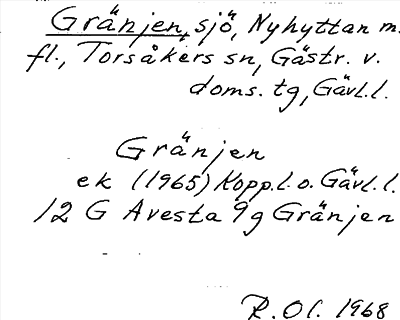 Gränjen, sjö, Nyhyttan m.
fl., Torsåkers sn, Gästr. v.
doms. tg, Gävl. l.
Gränjen
ek (1965) Kopp. l. o. Gävl. l.
12 G Avesta 9g Gränjen
R. Ol. 1968